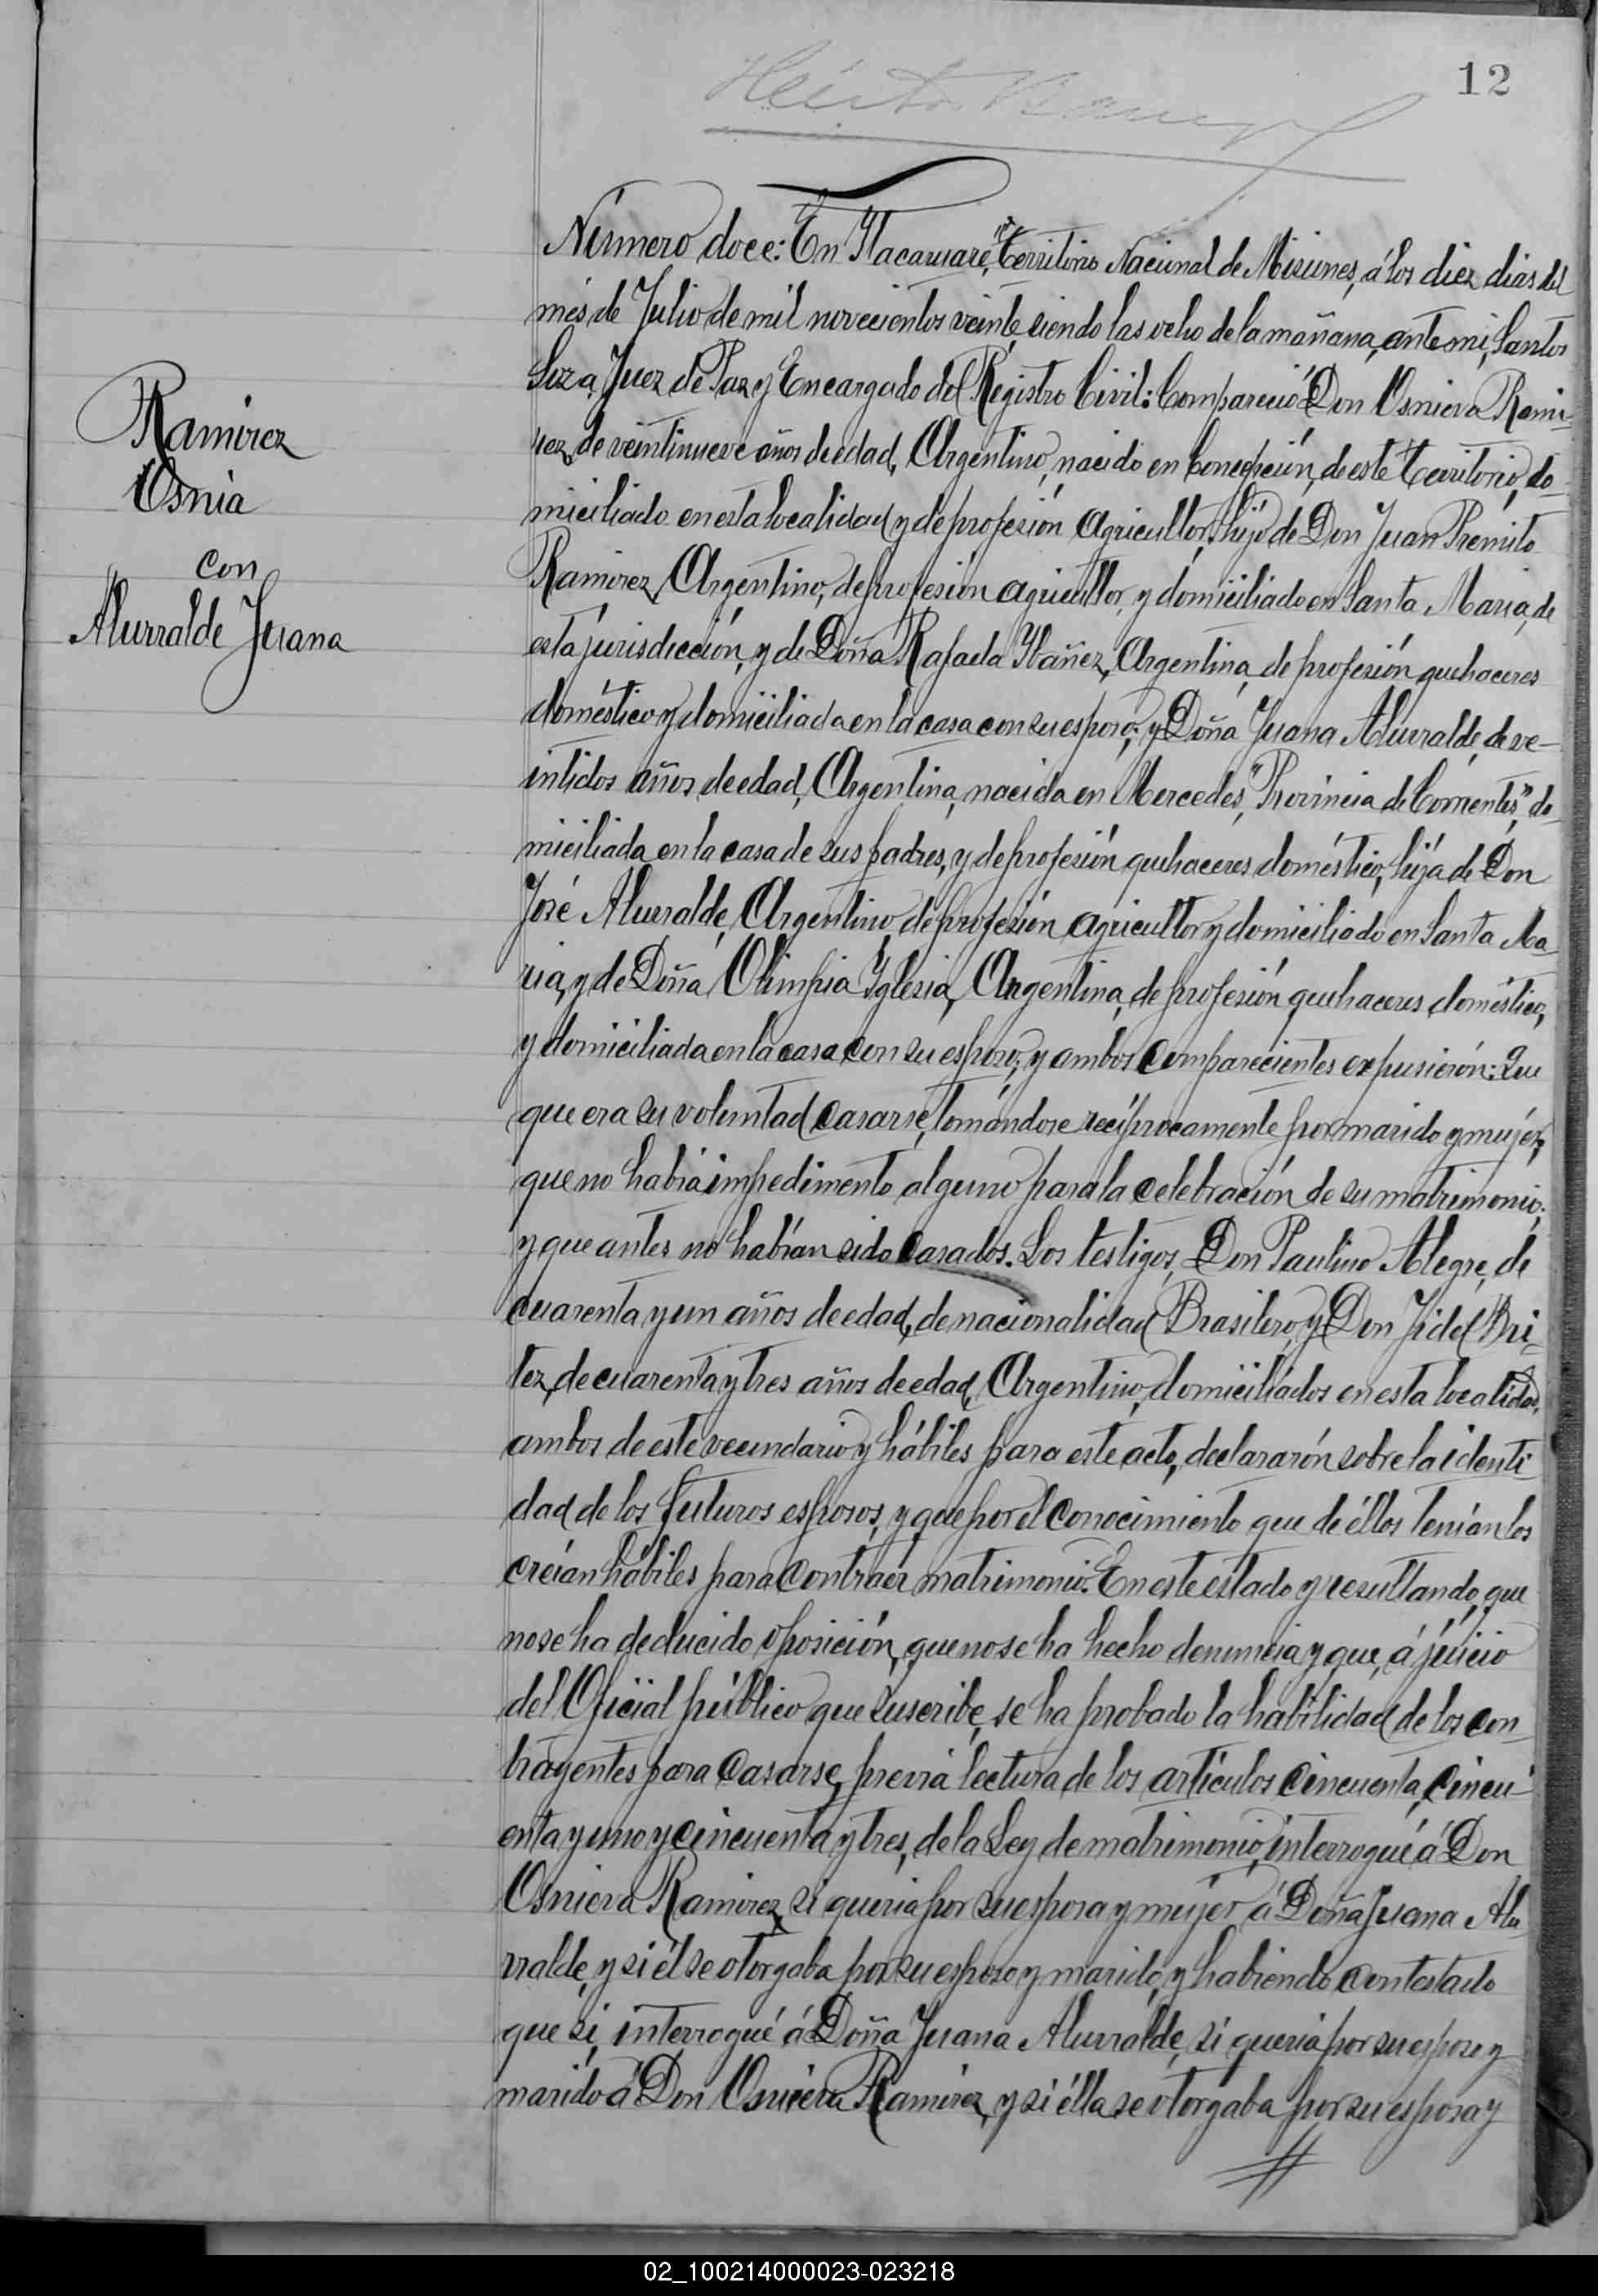 12
Número doce: En Itacaruaré, Territorio Nacional de Misiones, á los diez dias del
més de Julio de mil novecientos veinte, siendo las ocho de la mañana, ante mi, Santos
Juez de Paz y Encargado del Registro Civil: Compareció Don Osniera Rami-
rez, de veintinueve años de edad, Argentino, nacido en Concepción, de este territorio, do-
miciliado en esta localidad y de profesión agricultor, hijo de Don Juan
Ramirez, Argentino, de profesión agricultor, y domiciliado en Santa Maria, de
esta jurisdicción, y de Doña Rafaela Ybañez, Argentina, de profesión quehaceres
doméstico y domiciliada en la casa con su esposo; y Doña Juana Alurralde, de ve-
intidos años de edad, Argentina, nacida en Mercedes, "Provincia de Corrientes", do-
miciliada en la casa de sus padres, y de profesión quehaceres doméstico, hija de Don
José Alurralde, Argentino de profesión agricultor y domiciliado en Santa Ma-
ria, y de Doña Olimpia Yglesia, Argentina, de profesión quehaceres doméstico,
y domiciliada en la casa con su esposo; y ambos comparecientes expusierón: Que
que era su voluntad casarse, tomándose recíprocamente por marido y mujér,
que no habia impedimento alguno para la celebración de su matrimonio;
y que antes no habían sido casados. Los testigos, Don Paulino Alegre, de
cuarenta y un años de edad, de nacionalidad Brasilero, y Don Fidel Bri-
tez, de cuarenta y tres años de edad, Argentino, domiciliados en esta localidad,
ambos de este vecindario y hábiles para este acto, declararón sobre la identi-
dad de los futuros esposos, y que por el conocimiento que de éllos tenían los
creían hábiles para contraer matrimonio. En este estado y resultando, que
no se ha deducido oposición, que no se ha hecho denuncia y que, á juicio
del Oficial público que suscribe, se ha probado la habilidad de los con-
trayentes para casarse, previa lectura de los artículos cincuenta, cincu-
enta y uno y cincuenta y tres, de la Ley de matrimonio, interrogué á Don
Osniera Ramirez, si queria por su esposa y mujer á Doña Juana Alu-
rralde, y si él se otorgaba por su esposo y marido, y habiendo contestado
que si, interrogué á Doña Juana Alurralde, si queria por su esposo y
marido á Don Osniera Ramirez, y si élla se otorgaba por su esposa y
Ramirez
Osnia
con
Alurralde Juana
02_100214000023-023218